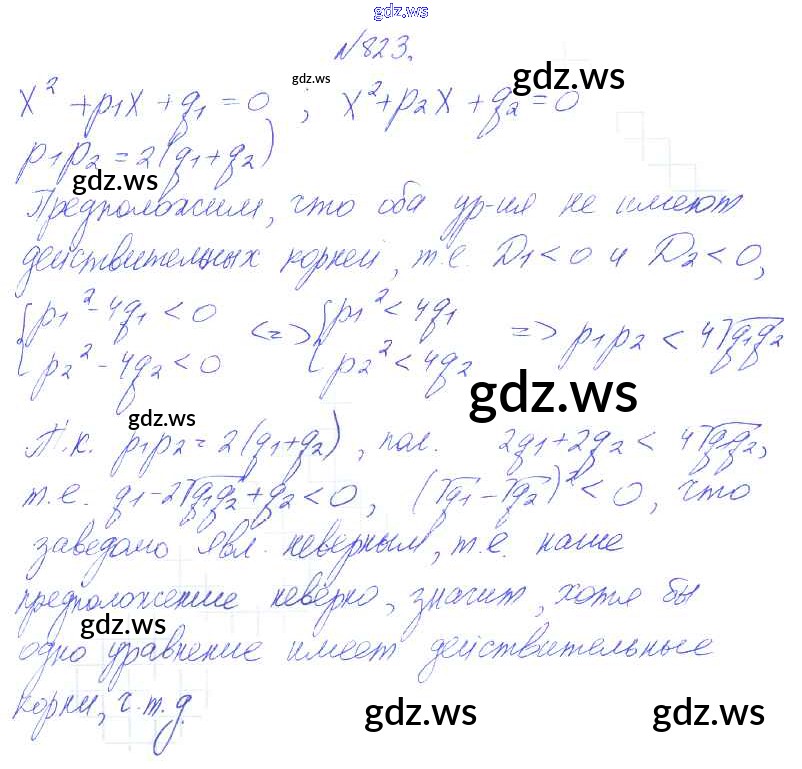 gdz.ws
№823.
gdz.ws
gdz.ws
x² + p₁x + q₁ = 0 ; x² + p₂x + q₂ = 0
p₁p₂ = 2(q₁+q₂)
gdz.ws
Предположим, что оба ур-ия не имеют
действительных корней, т.е. D₁ < 0 и D₂ < 0,
{p₁² - 4q₁ < 0 <=> {p₁² < 4q₁ => p₁p₂ < 4√q₁q₂
{p₂² - 4q₂ < 0 {p₂² < 4q₂
gdz.ws
gdz.ws
Т.к. p₁p₂ = 2(q₁+q₂), пол. 2q₁+2q₂ < 4√q₁q₂,
т.е. q₁ - 2√q₁q₂ + q₂ < 0, (√q₁ - √q₂)² < 0, что
заведомо явл. неверным, т.е. наше
предположение неверно, значит, хотя бы
gdz.ws
одно уравнение имеет действительные
корни, ч.т.д.
gdz.ws
gdz.ws